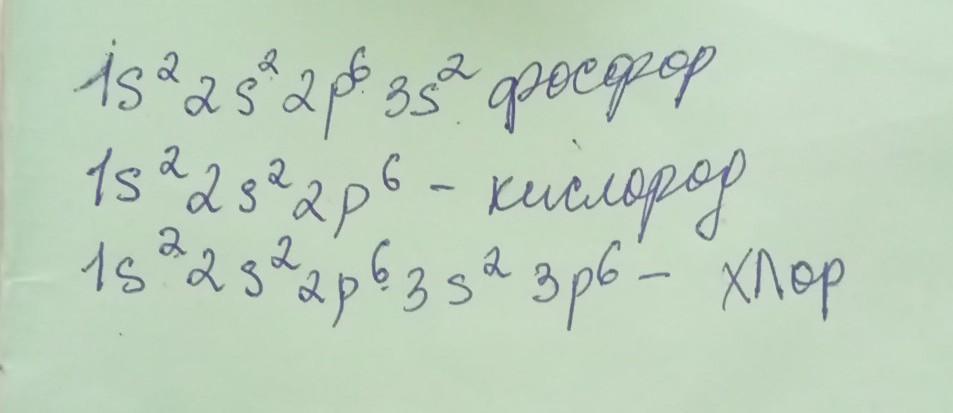 1s² 2s² 2p⁶ 3s² фосфор
1s² 2s² 2p⁶ - кислород
1s² 2s² 2p⁶ 3s² 3p⁶ - хлор